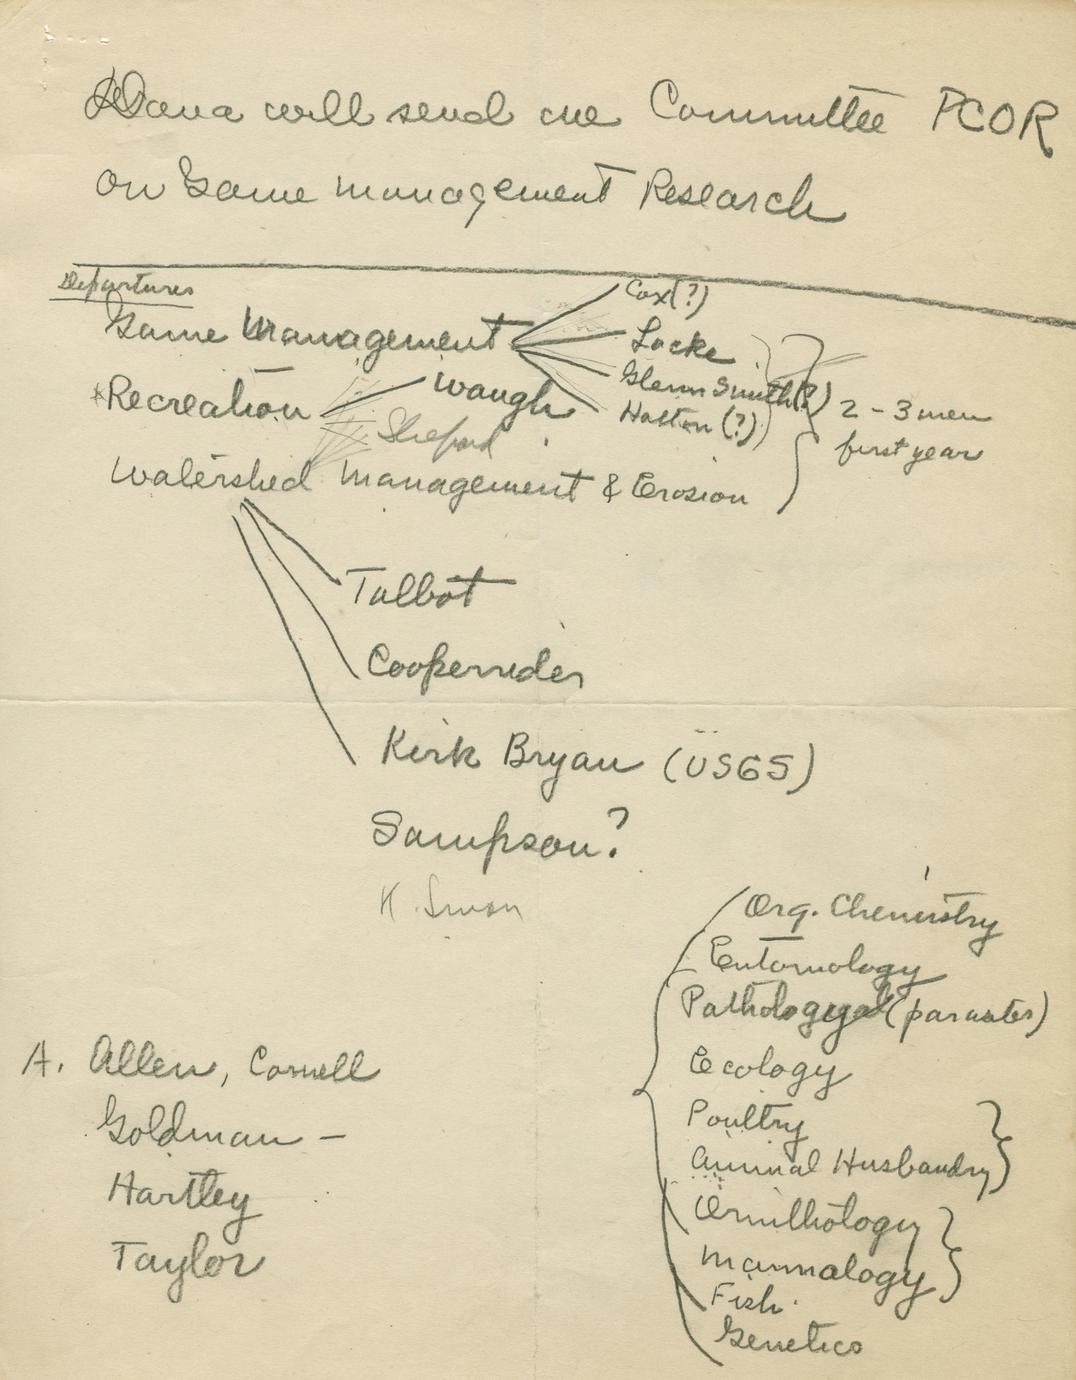 Dana will send me Committee PCOR
on Game Management Research
Departures
Game Management
Cox(?)
Locke
Glenn Smith(?)
Hatton (?)
2 - 3 men
first year
Recreation
Waugh
Watershed Management & Erosion
Talbot
Cooperrider
Kirk Bryan (USGS)
Sampson?
Org. Chemistry
Entomology
Pathology (parasites)
Ecology
Poultry
Animal Husbandry
Ornithology
Mammalogy
Fish
Genetics
A. Allen, Cornell
Goldman —
Hartley
Taylor